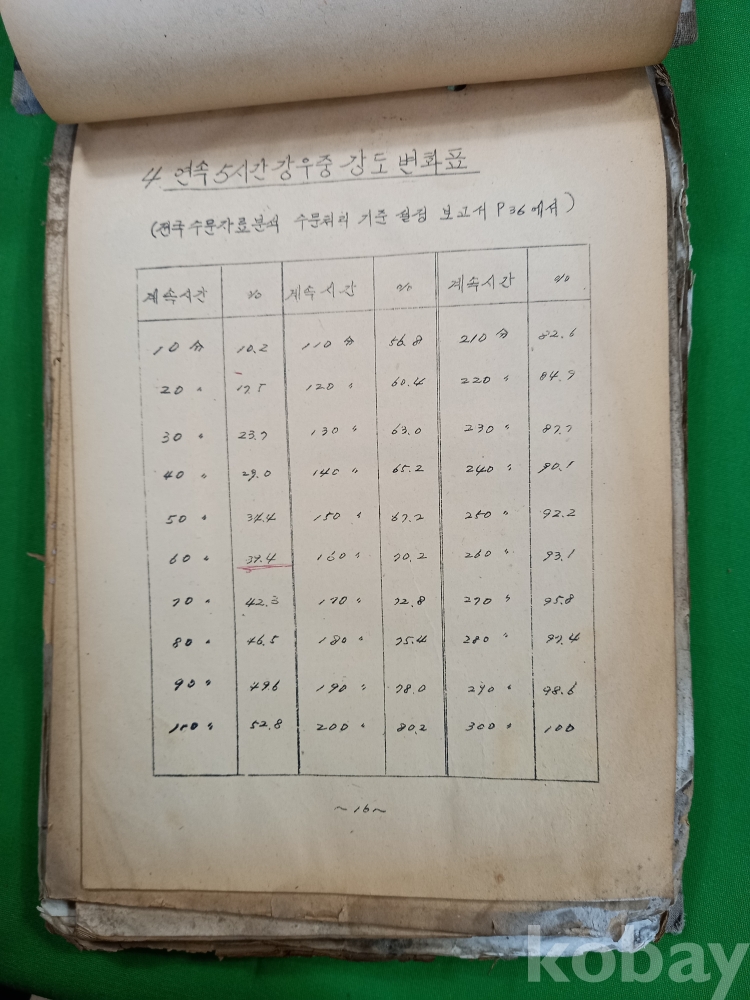 4. 연속 5시간 강우중 강도 변화표
(전국수문자료분석 수문처리 기준 설정 보고서 P36에서)
계속시간 % 계속시간 % 계속시간 %
10 分 10.2 110 分 56.8 210 分 82.6
20 〃 17.5 120 〃 60.4 220 〃 84.9
30 〃 23.7 130 〃 63.0 230 〃 87.7
40 〃 29.0 140 〃 65.2 240 〃 90.1
50 〃 34.4 150 〃 67.2 250 〃 92.2
60 〃 39.4 160 〃 70.2 260 〃 93.1
70 〃 42.3 170 〃 72.8 270 〃 95.8
80 〃 46.5 180 〃 75.4 280 〃 97.4
90 〃 49.6 190 〃 78.0 290 〃 98.6
100 〃 52.8 200 〃 80.2 300 〃 100
~16~
kobay